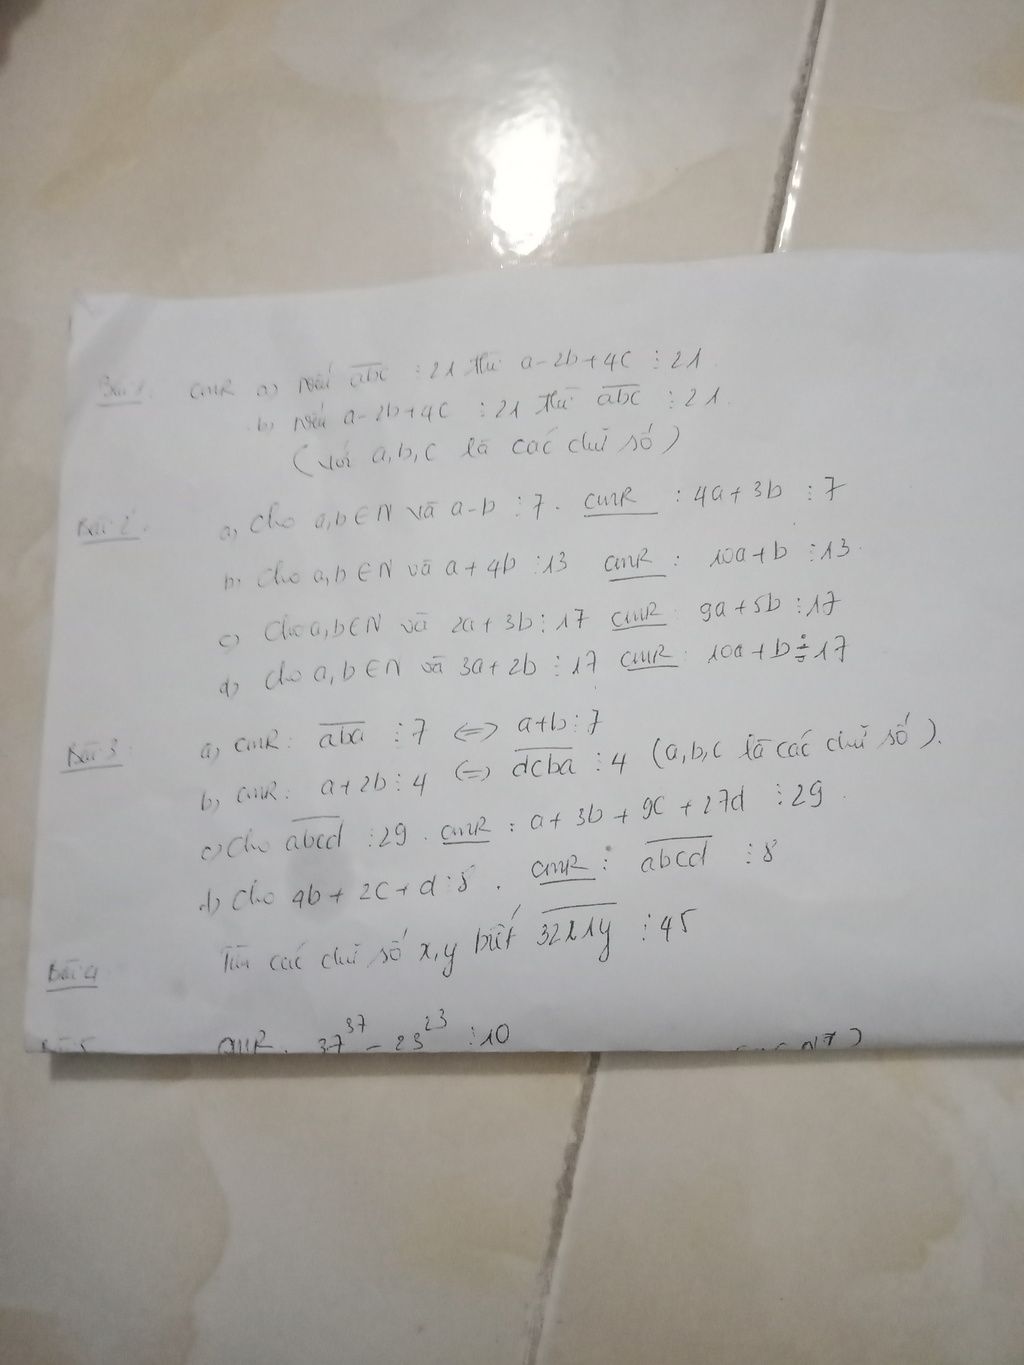 Bài 1: CMR a) Nếu a̅b̅c̅ ⋮ 21 thì a-2b+4c ⋮ 21.
b) Nếu a-2b+4c ⋮ 21 thì a̅b̅c̅ ⋮ 21.
(với a,b,c là các chữ số)
Bài 2: a) Cho a,b∈N và a-b ⋮ 7. CMR : 4a+3b ⋮ 7
b) Cho a,b∈N và a+4b ⋮ 13 CMR : 10a+b ⋮ 13.
c) Cho a,b∈N và 2a+3b ⋮ 17 CMR : 9a+5b ⋮ 17
d) Cho a,b∈N và 3a+2b ⋮ 17 CMR : 10a+b ⋮ 17
Bài 3: a) CMR : a̅b̅a̅ ⋮ 7 <=> a+b ⋮ 7
b) CMR : a+2b ⋮ 4 <=> d̅c̅b̅a̅ ⋮ 4 (a,b,c là các chữ số).
c) Cho a̅b̅c̅d̅ ⋮ 29. CMR : a+3b+9c+27d ⋮ 29.
d) Cho 4b+2c+d ⋮ 8. CMR : a̅b̅c̅d̅ ⋮ 8
Bài 4 Tìm các chữ số x,y biết 3̅2̅x̅1̅y̅ ⋮ 45
Bài 5 CMR. 37³⁷ - 23²³ ⋮ 10